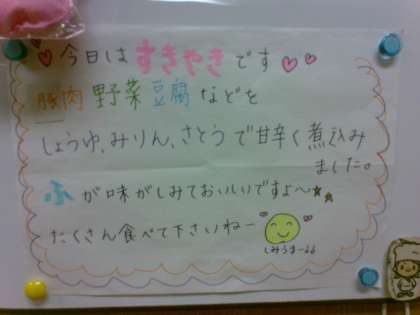 今日はすきやきです
豚肉 野菜 豆腐 などを
しょうゆ、みりん、さとうで甘辛く煮込み
ました。
ふが味がしみておいしいですよ〜
たくさん食べて下さいねー